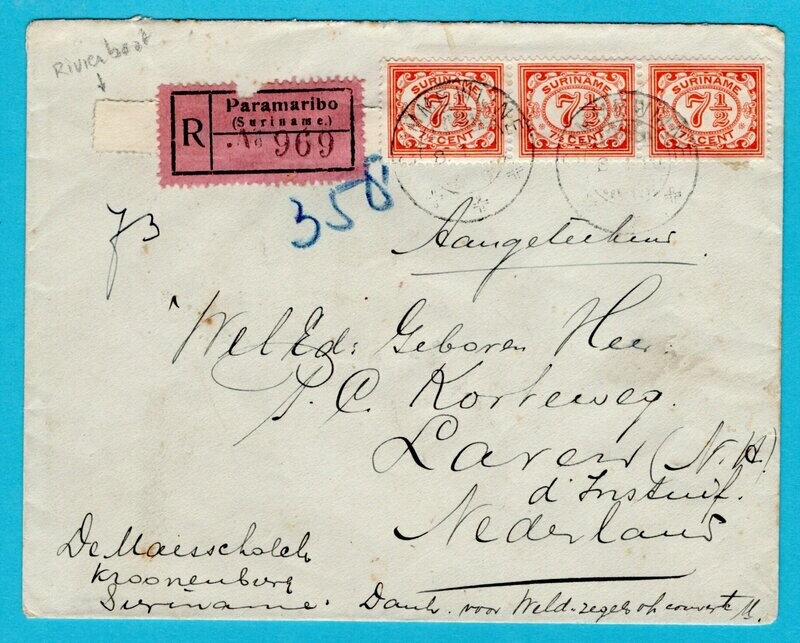 Rivierboot
R
Paramaribo
(Suriname.)
No 969
SURINAME
7 1/2
7 1/2 CENT
SURINAME
7 1/2
7 1/2 CENT
SURINAME
7 1/2
7 1/2 CENT
358
Aangeteekend
Wel Ed: Geboren Heer:
P. C. Korteweg.
Laren (N.H.)
d'Instuif.
Nederland
De Maesschalck
Kroonenburg
Suriname.
Dank. voor Weld. zegels op couverte